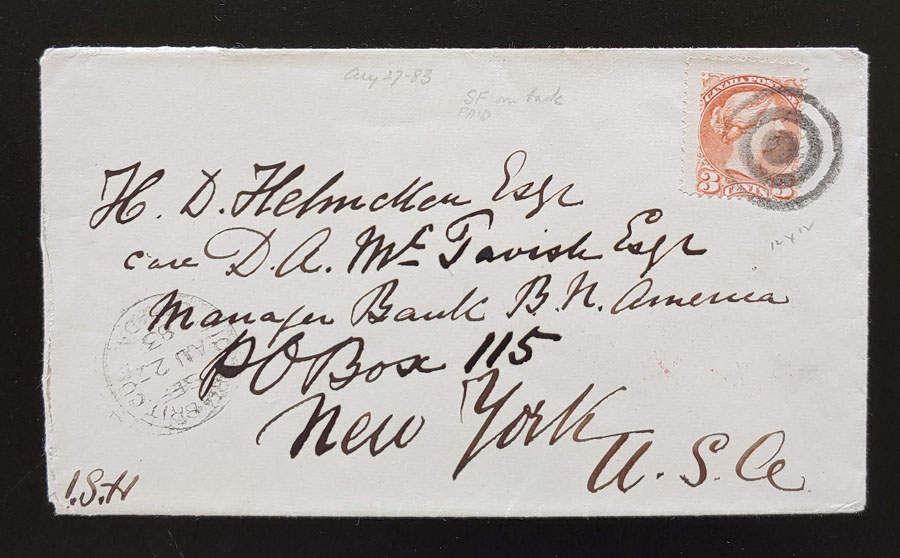 Aug 27-83
SF on back
PAID
CANADA POSTAGE
3 CENTS 3
12 x 12
H. D. Helmcken Esqr
care D. A. McTavish Esqr
Manager Bank B. N. America
PO Box 115
New York
U. S. A
BRIT. COL
AU 27
83
I.S.H